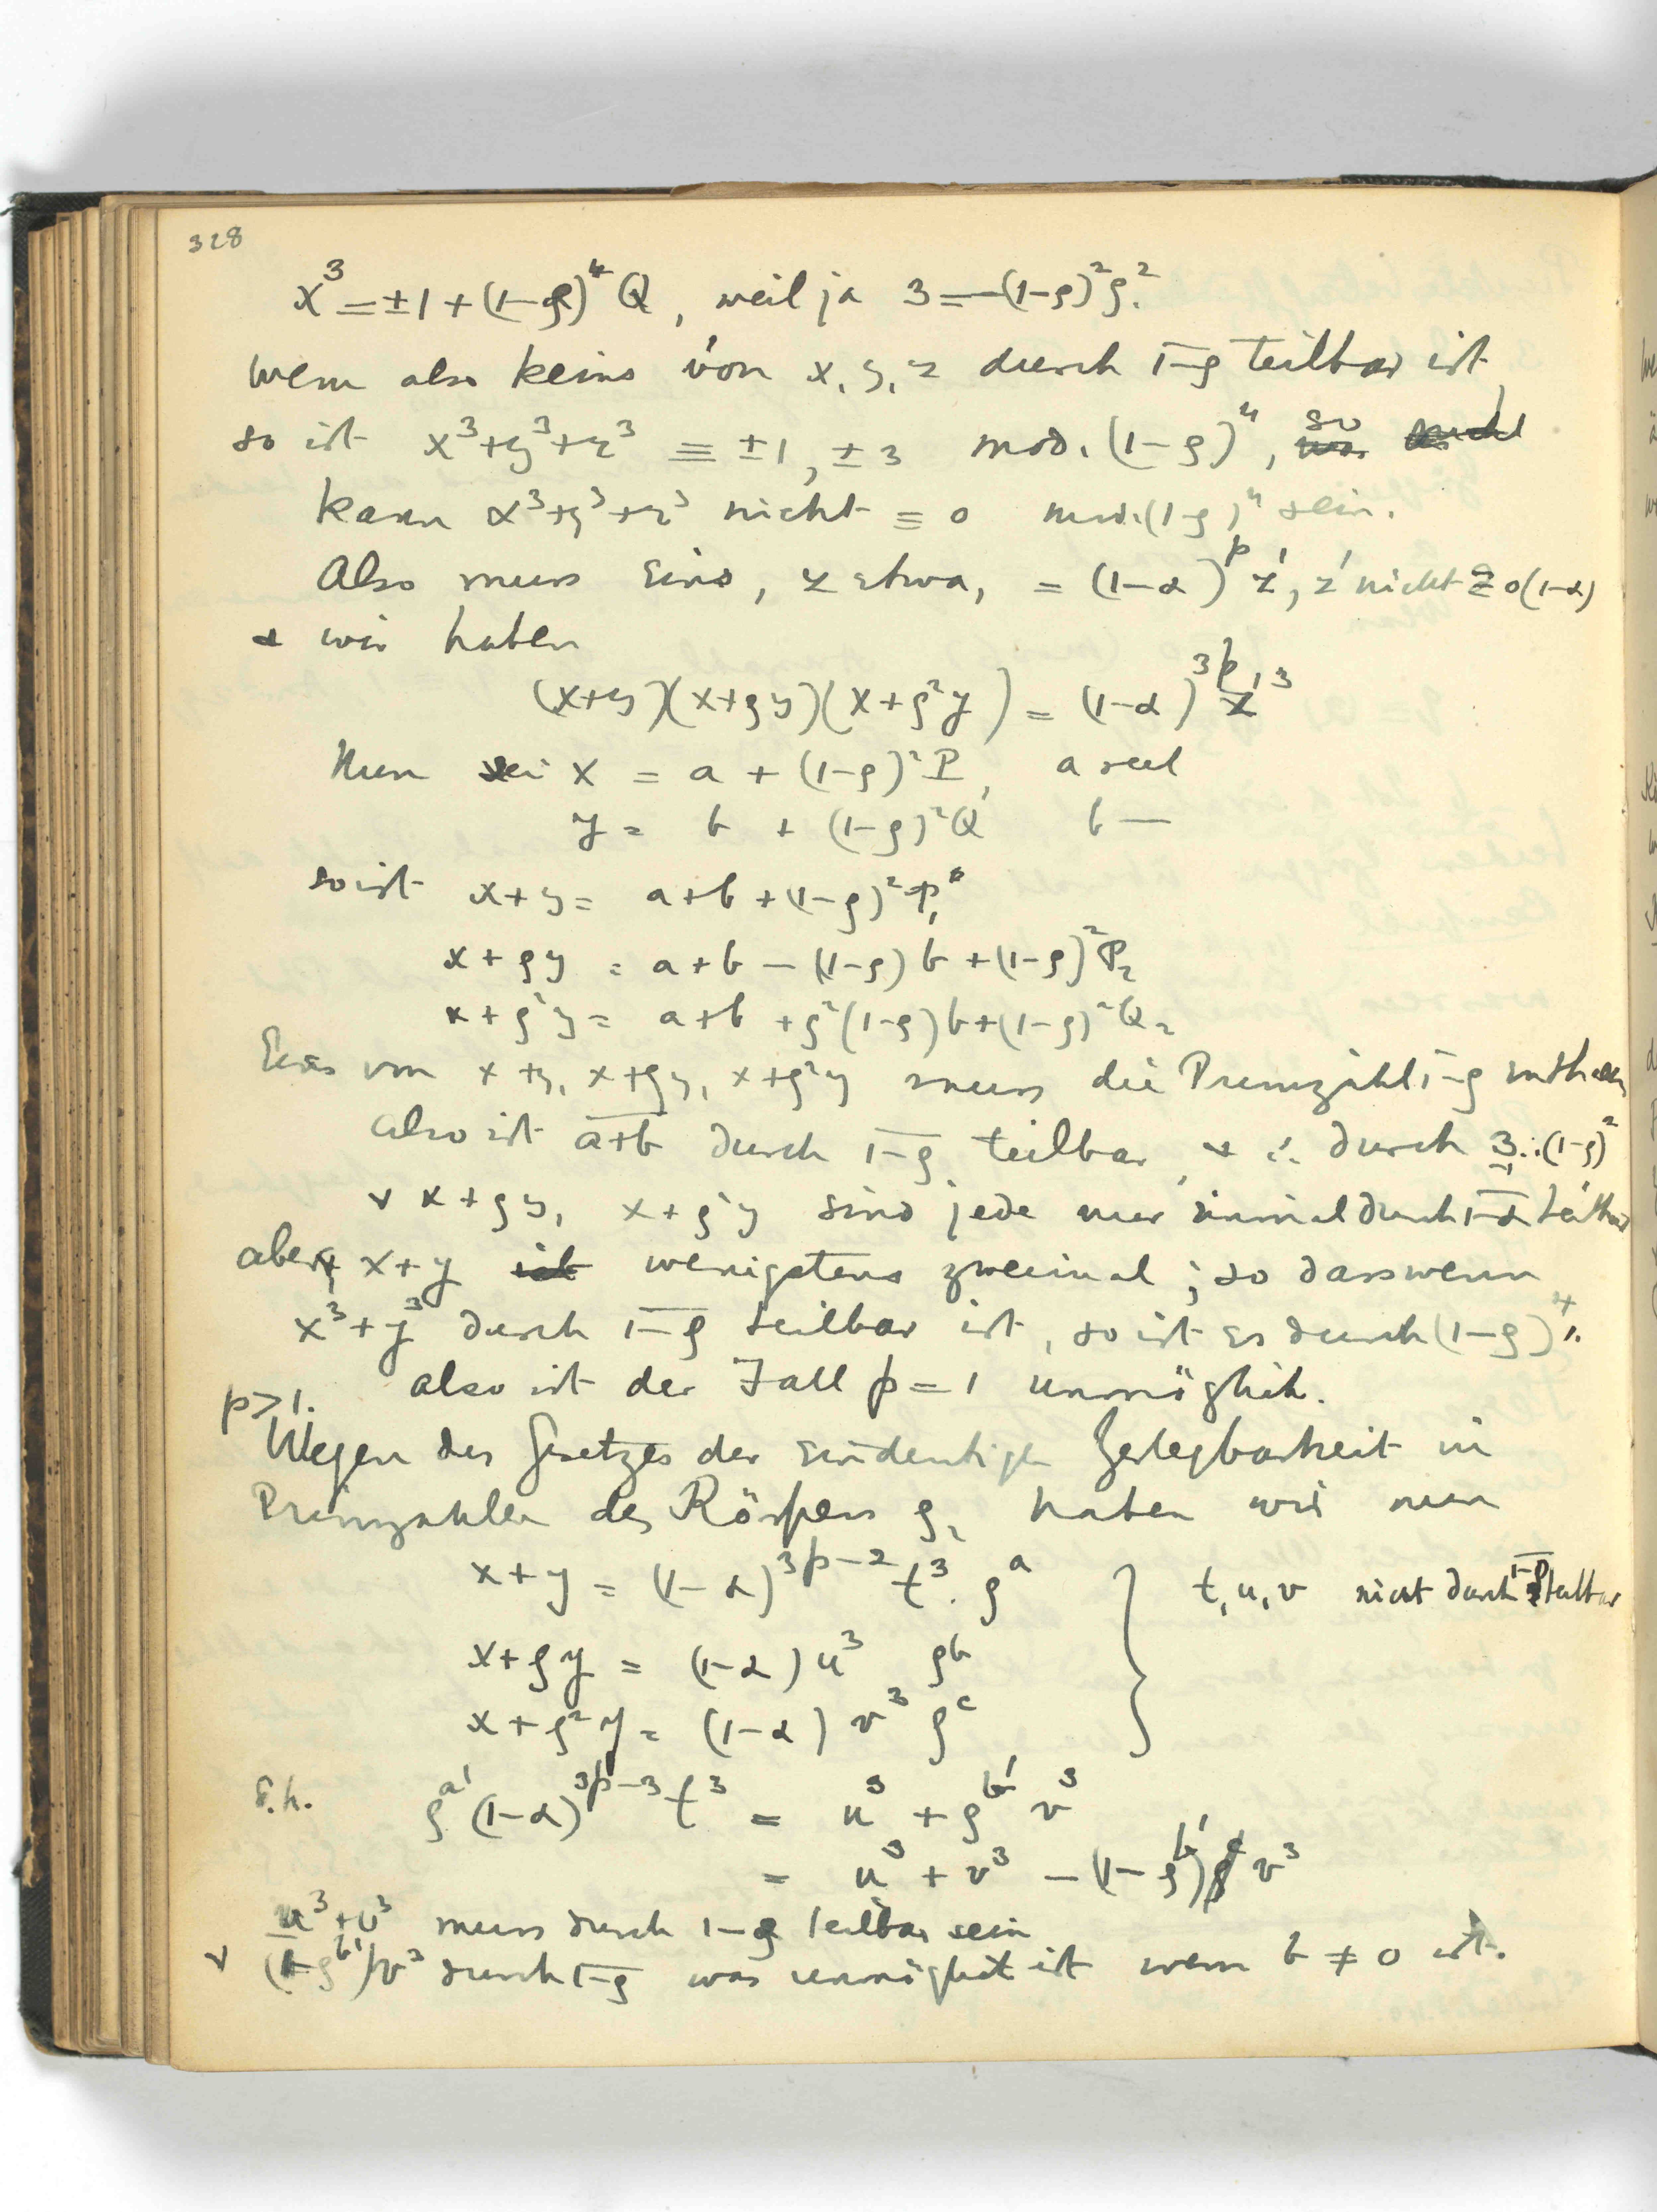 328
x³ = ±1 + (1-ρ)⁴ Q, weil ja 3 = -(1-ρ)²ρ².
wenn also keins von x, y, z durch 1-ρ teilbar ist,
so ist x³+y³+z³ ≡ ±1, ±3 mod. (1-ρ)⁴, so
kann x³+y³+z³ nicht ≡ 0 mod. (1-ρ)⁴ sein.
Also muss eins, z etwa, = (1-α)ᵖ z', z' nicht ≡ 0 (1-α)
& wir haben
(x+y)(x+ρy)(x+ρ²y) = (1-α)³ᵖ z'³
Nun sei x = a + (1-ρ)² P, a reel
y = b + (1-ρ)² Q b —
so ist x+y = a+b+(1-ρ)² P₁
x+ρy = a+b-(1-ρ)b+(1-ρ)² P₂
x+ρ²y = a+b+ρ²(1-ρ)b+(1-ρ)² Q₂
Eins von x+y, x+ρy, x+ρ²y muss die Primzahl 1-ρ enthalten
also ist a+b durch 1-ρ teilbar, & ∴ durch 3 ∴ (1-ρ)²
& x+ρy, x+ρ²y sind jede nur einmal durch 1-α teilbar
aber x+y wenigstens zweimal; so dass wenn
x³+y³ durch 1-ρ teilbar ist, so ist es durch (1-ρ)⁴.
p>1. also ist der Fall p=1 unmöglich.
Wegen des Gesetzes der eindeutigen Zerlegbarkeit in
Primzahlen des Körpers ρ, haben wir nun
x+y = (1-α)³ᵖ⁻² t³. ρᵃ } t, u, v nicht durch 1-ρ teilbar
x+ρy = (1-α) u³ ρᵇ
x+ρ²y = (1-α) v³ ρᶜ
d.h. ρᵃ' (1-α)³ᵖ⁻³ t³ = u³ + ρᵇ' v³
= u³ + v³ - (1-ρᵇ') v³
u³+v³ muss durch 1-ρ teilbar sein
& (1-ρᵇ')v³ durch 1-ρ was unmöglich ist wenn b ≠ 0 ist.